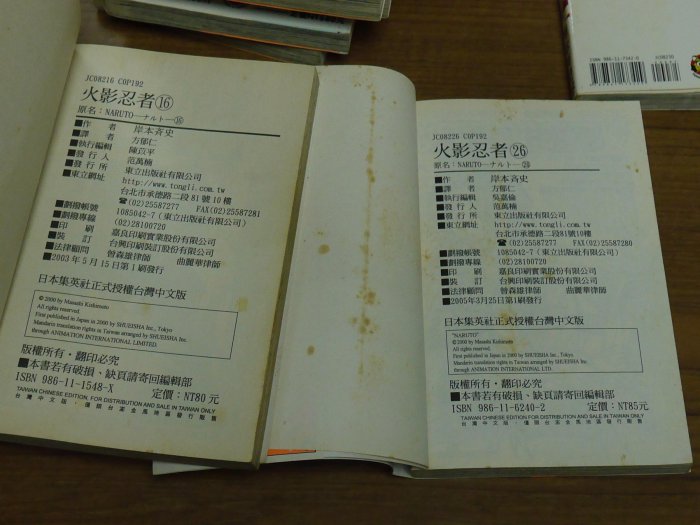 JC08216 C0P192
火影忍者⑯
原名:NARUTO—ナルト—⑯
■作 者 岸本斉史
■譯 者 方郁仁
■執行編輯 陳苡平
■發 行 人 范萬楠
■發 行 所 東立出版社有限公司
■東立網址 http://www.tongli.com.tw
台北市承德路二段81號10樓
☎(02)25587277 FAX(02)25587281
■劃撥帳號 1085042-7(東立出版社有限公司)
■劃撥專線 (02)28100720
■印 刷 嘉良印刷實業股份有限公司
■裝 訂 台興印刷裝訂股份有限公司
■法律顧問 曾森雄律師 曲麗華律師
■2003年5月15日第1刷發行
日本集英社正式授權台灣中文版
©2000 by Masashi Kishimoto
All rights reserved.
First published in Japan in 2000 by SHUEISHA Inc., Tokyo
Mandarin translation rights in Taiwan arranged by SHUEISHA Inc.
through ANIMATION INTERNATIONAL LIMITED.
版權所有・翻印必究
■本書若有破損、缺頁請寄回編輯部
ISBN 986-11-1548-X 定價:NT80元
TAIWAN CHINESE EDITION, FOR DISTRIBUTION AND SALE IN TAIWAN ONLY
台灣中文版・僅限台澎金馬地區發行販售
JC08226 C0P192
火影忍者㉖
原名:NARUTO—ナルト—㉖
■作 者 岸本斉史
■譯 者 方郁仁
■執行編輯 吳嘉倫
■發 行 人 范萬楠
■發 行 所 東立出版社有限公司
■東立網址 http://www.tongli.com.tw
台北市承德路二段81號10樓
☎(02)25587277 FAX(02)25587280
■劃撥帳號 1085042-7(東立出版社有限公司)
■劃撥專線 (02)28100720
■印 刷 嘉良印刷實業股份有限公司
■裝 訂 台興印刷裝訂股份有限公司
■法律顧問 曾森雄律師 曲麗華律師
■2005年3月25日第1刷發行
日本集英社正式授權台灣中文版
"NARUTO"
©2000 by Masashi Kishimoto
First published in Japan in 2000 by SHUEISHA Inc., Tokyo
Mandarin translation rights in Taiwan arranged by SHUEISHA Inc.
through ANIMATION INTERNATIONAL LTD.
版權所有・翻印必究
■本書若有破損、缺頁請寄回編輯部
ISBN 986-11-6240-2 定價:NT85元
TAIWAN CHINESE EDITION, FOR DISTRIBUTION AND SALE IN TAIWAN ONLY
台灣中文版・僅限台澎金馬地區發行販售